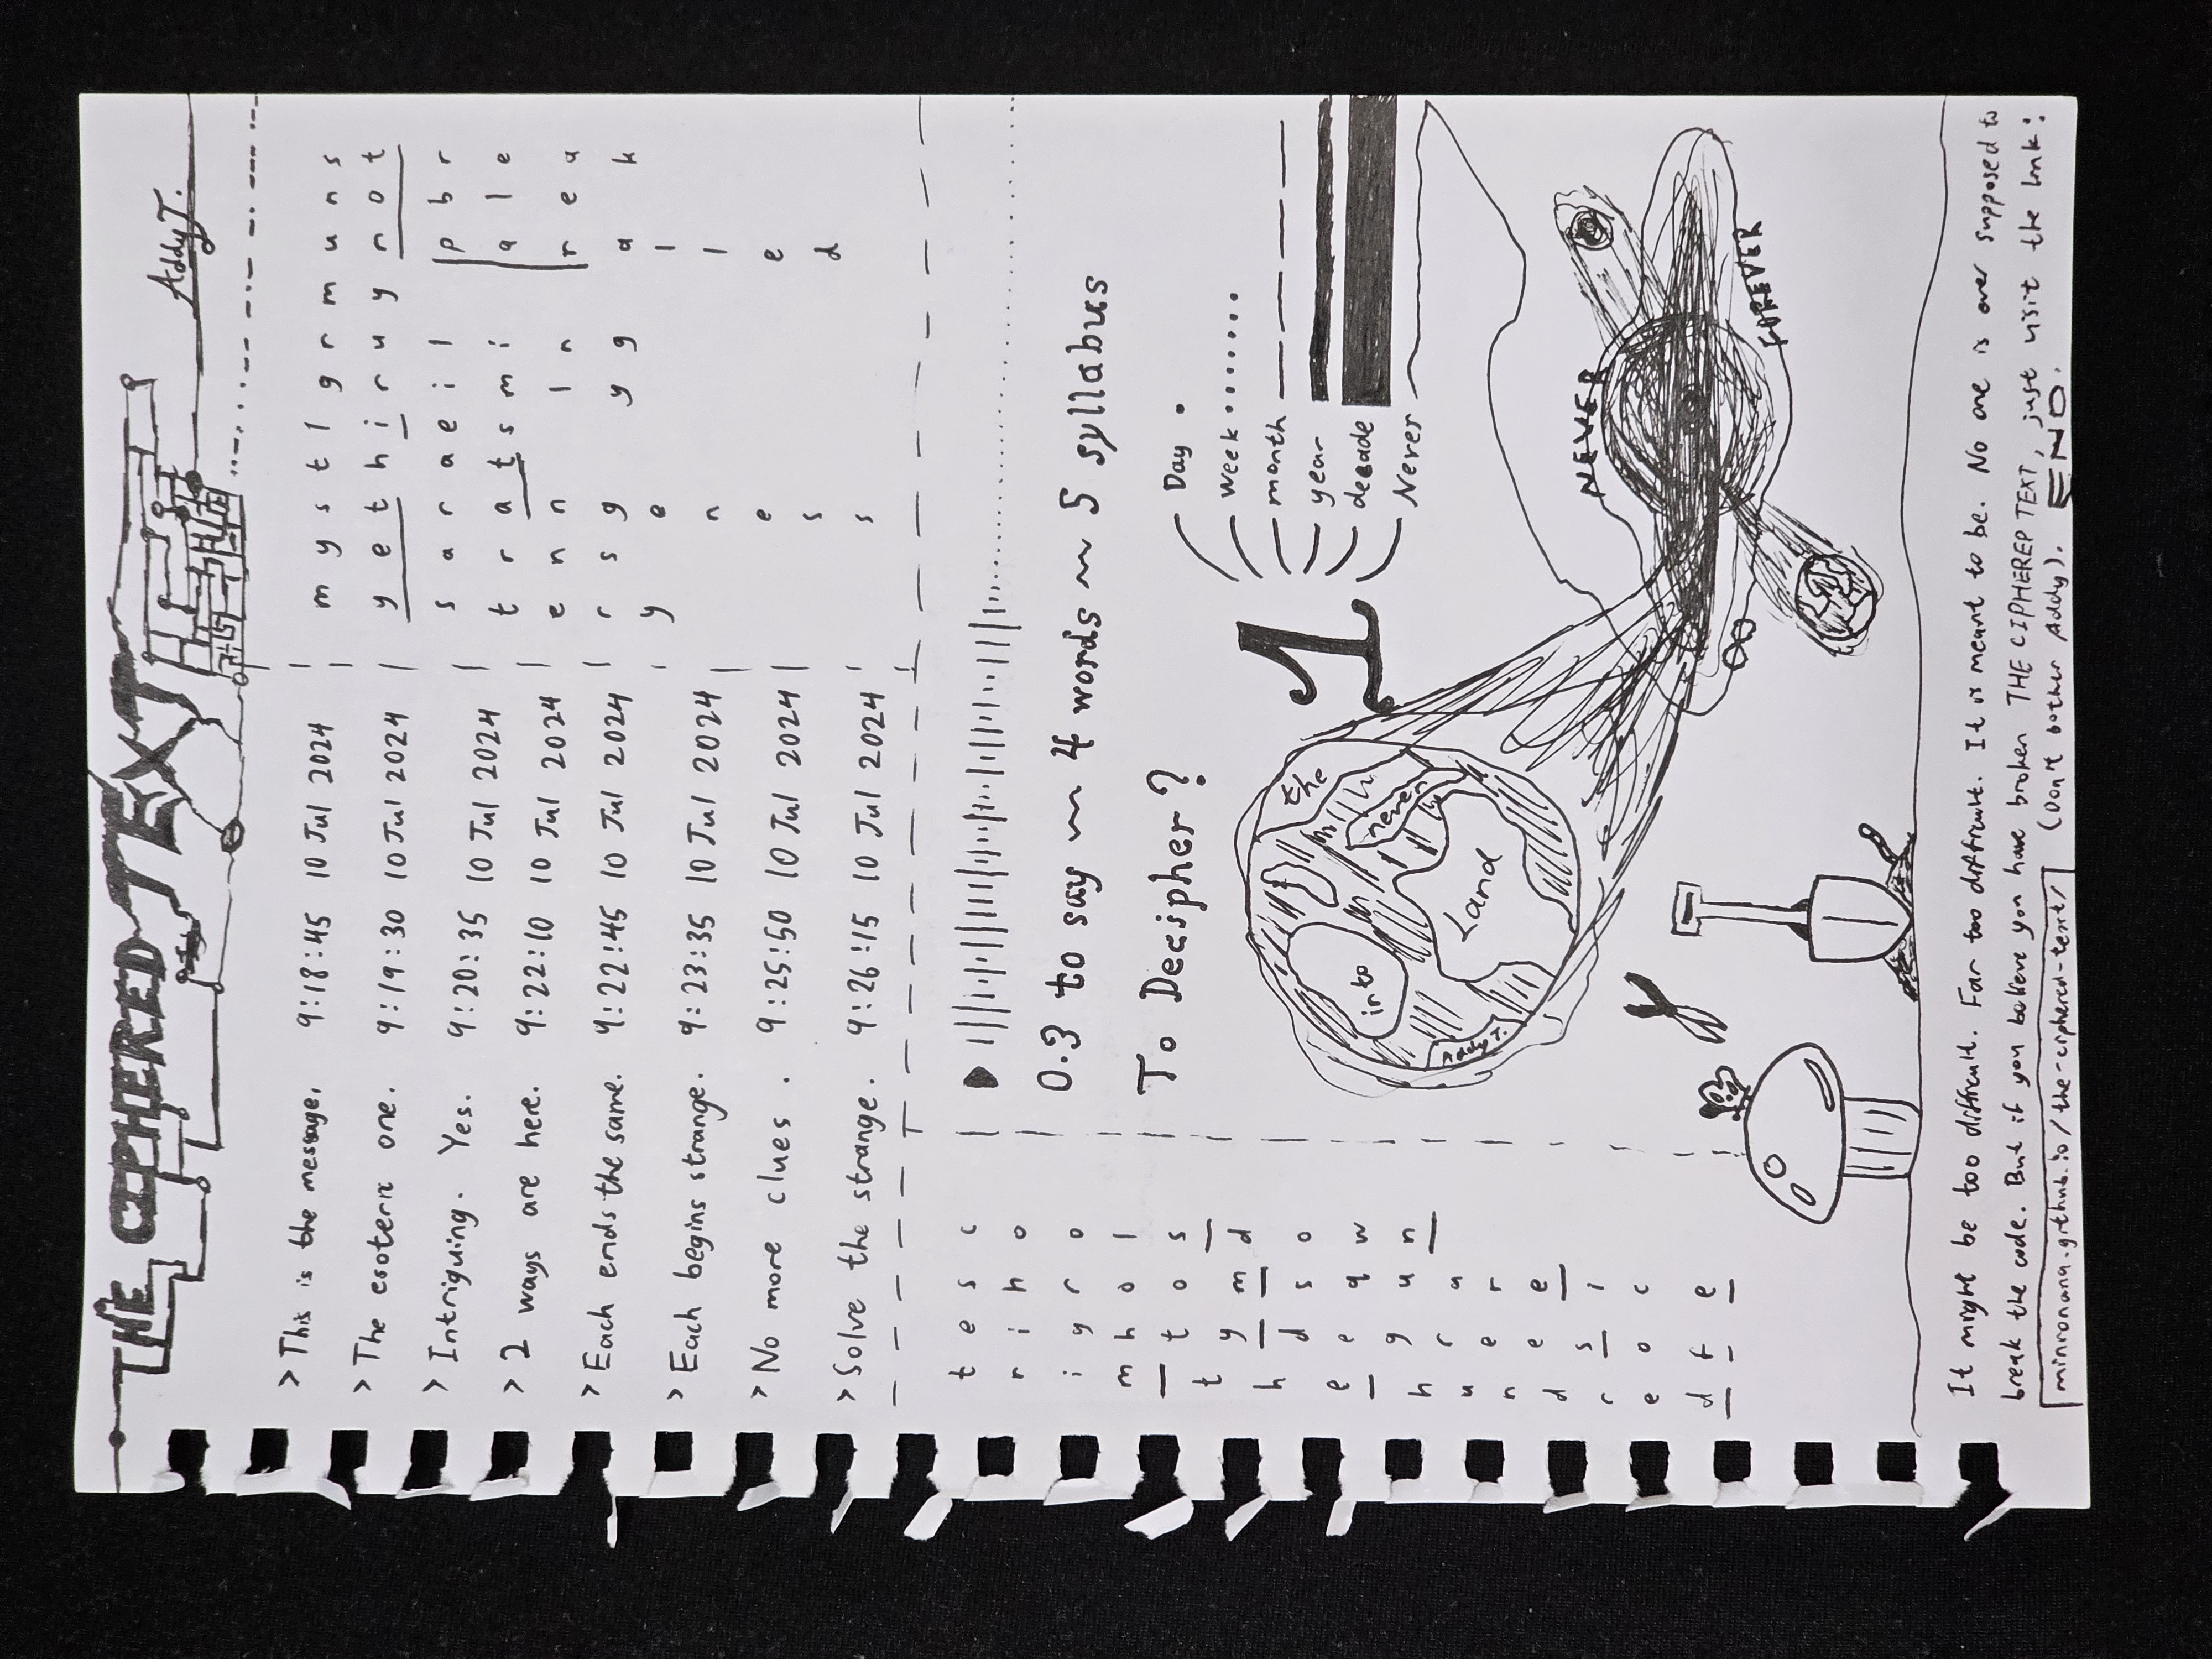 THE CIPHERED TEXT
Addy T.
> This is the message. 9:18:45 10 Jul 2024
> The esoteric one. 9:19:30 10 Jul 2024
> Intriguing. Yes. 9:20:35 10 Jul 2024
> 2 ways are here. 9:22:10 10 Jul 2024
> Each ends the same. 9:22:45 10 Jul 2024
> Each begins strange. 9:23:35 10 Jul 2024
> No more clues. 9:25:50 10 Jul 2024
> Solve the strange. 9:26:15 10 Jul 2024
m y s t l g r m u n s
y e t h i r u y n o t
s a r a e i l p b r
t r a t s m i a l e
e n n l n r e a
r s g y g a k
y e l
n l
e e
s d
s
t e s c
r i h o
i g r o
m h o l
t o s
t y m d
h d s o
e e q w
h g u n
u r a
n e r
d e e
r s l
e o c
d f e
0.3 to say ~ 4 words ~ 5 syllabus
To Decipher?
1
Day
week
month
year
decade
Never
the
into
never
Land
Addy T.
NEVER
∞
FOREVER
It might be too difficult. Far too difficult. It is meant to be. No one is ever supposed to
break the code. But if you believe you have broken THE CIPHERED TEXT, just visit the link:
minronana.github.io/the-ciphered-text/ (Don't bother Addy). END.